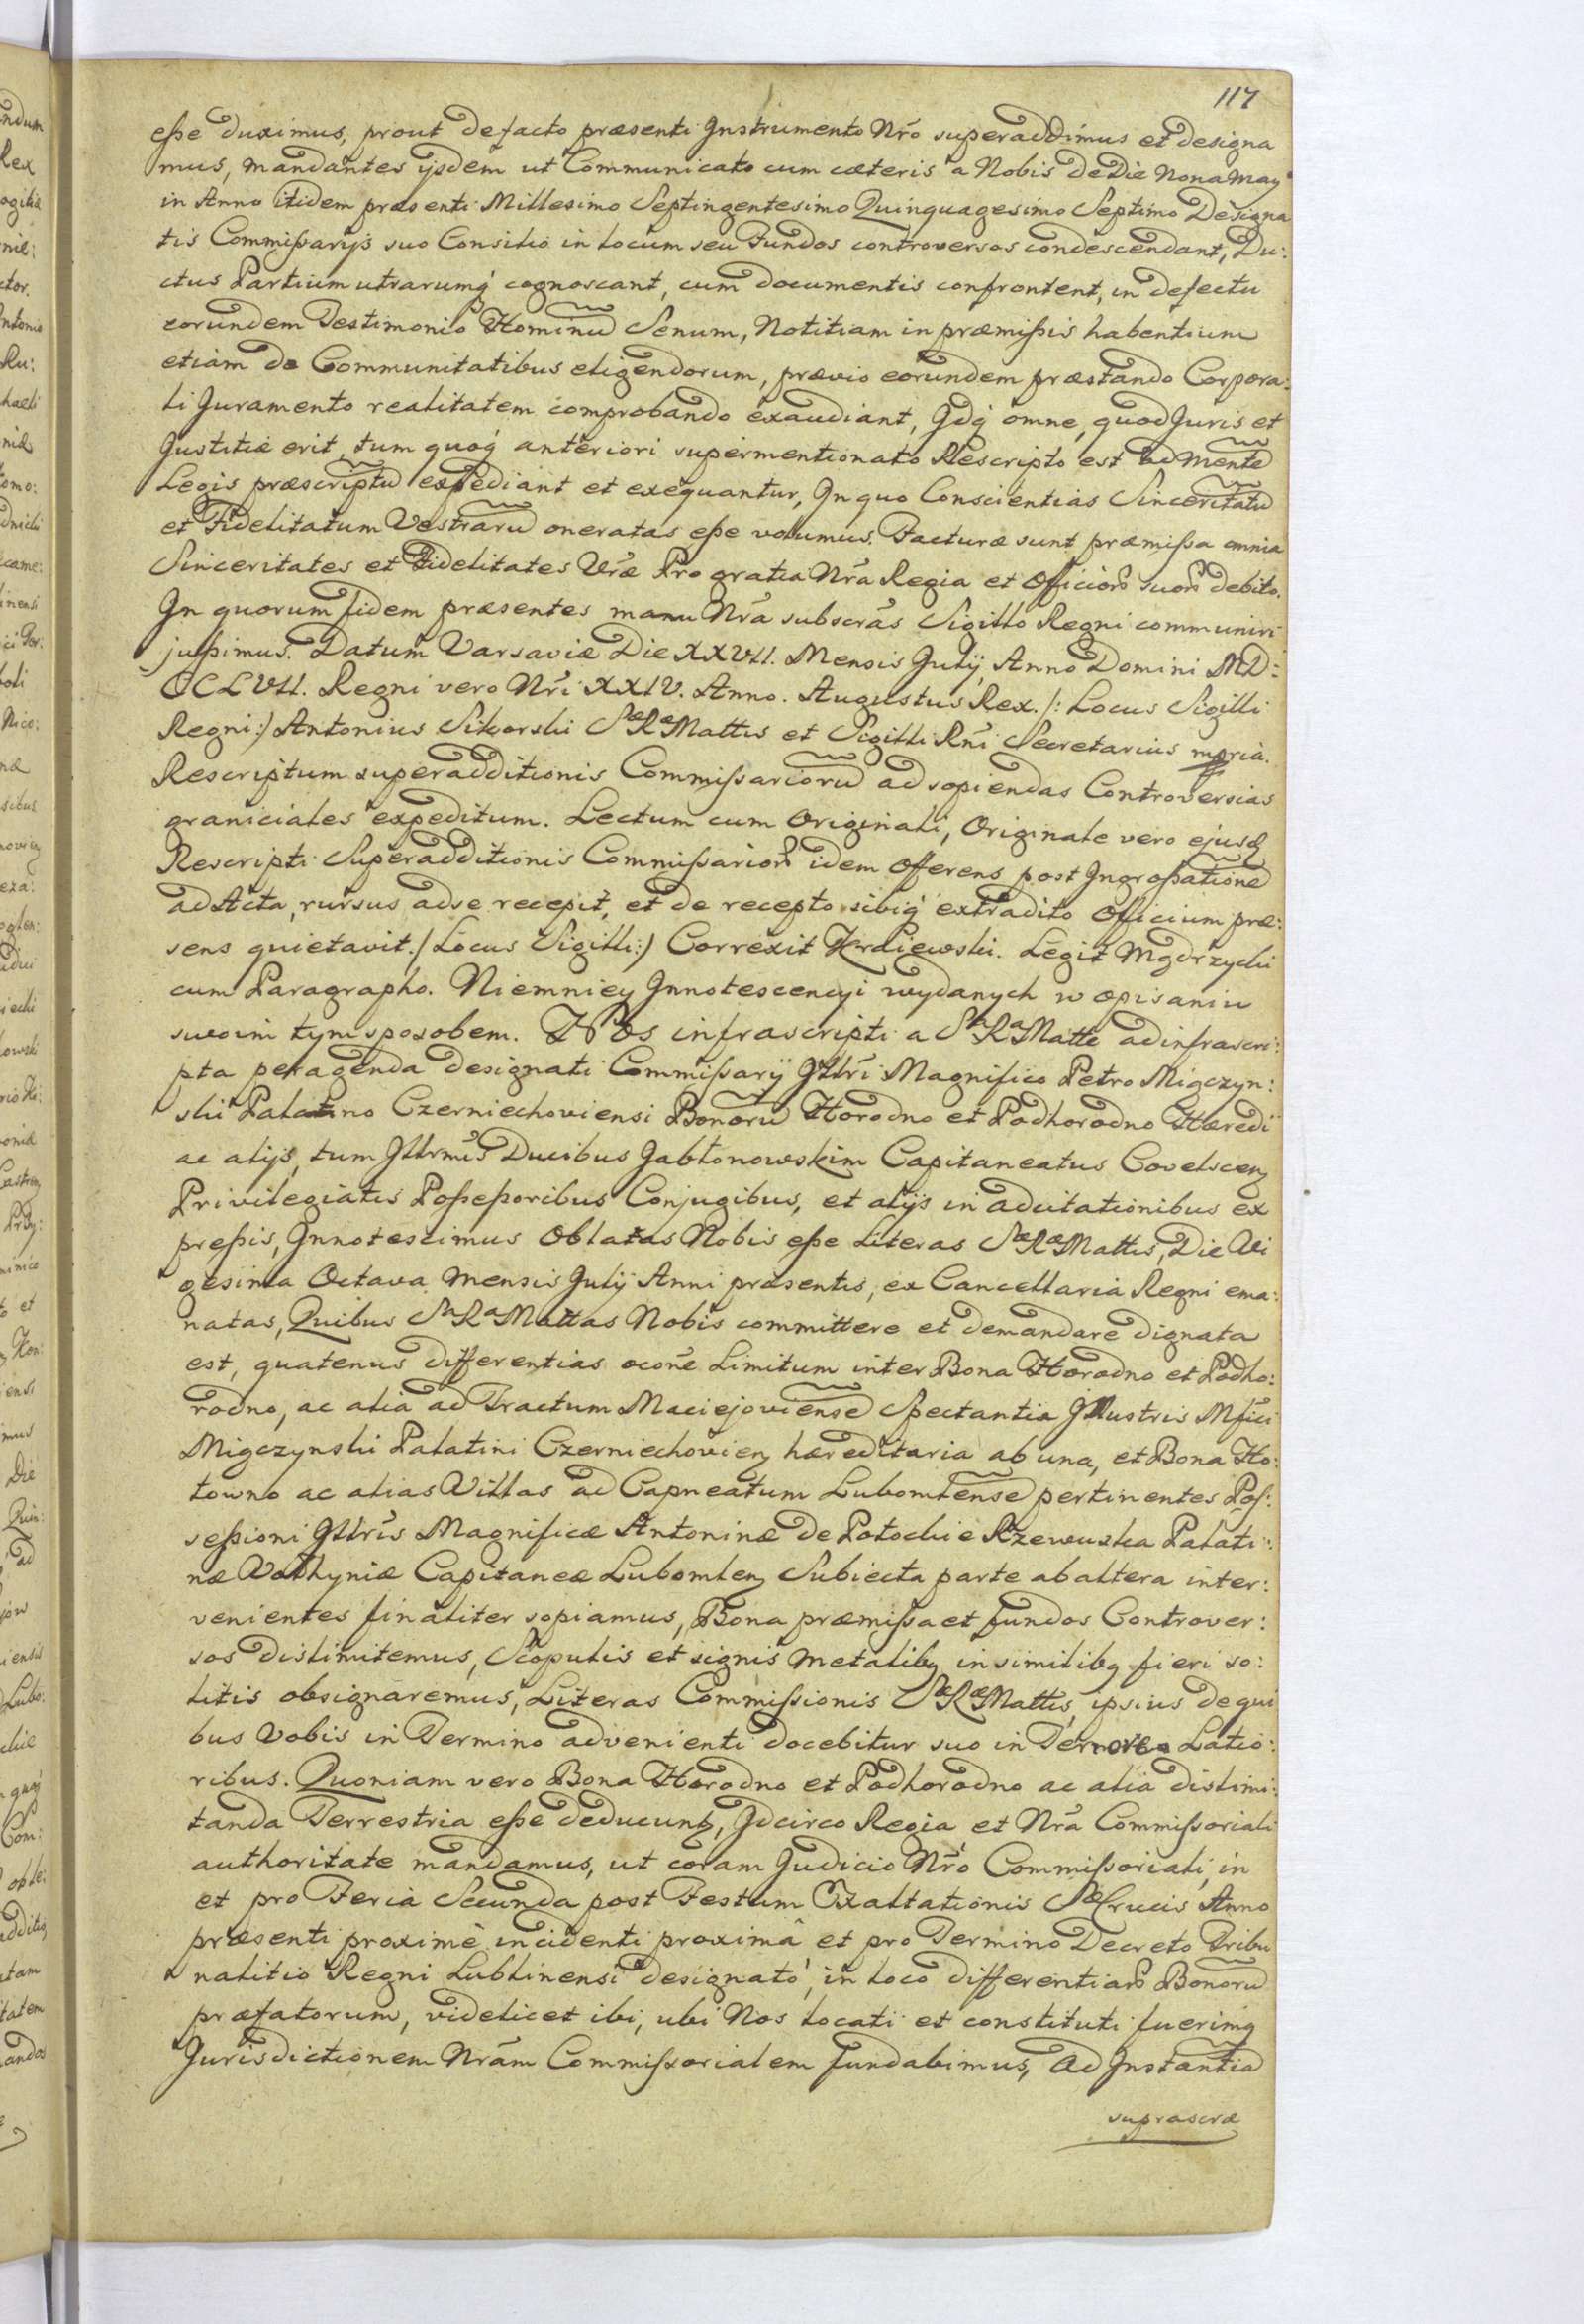 117
eße duximus, prout defacto præsenti Jnstrumento Nrõ superaddimus et designa
mus, mandantes ijsdem ut Communicato cum cæteris a Nobis de Die Nona May
in Anno itidem præsenti Millesimo Septingentesimo Quinquagesimo Septimo Designa
tis Commißarijs suo Consilio in locum seu Fundos controversos condescendant, Du:
ctus Partium utrarumq́ cognoscant, cum documentis confrontent, in defectu
eorundem Testimonio Hominũ Senum, Notitiam in præmißis habentium
etiam de Communitatibus eligendorum, prævio eorundem præstando Corpora:
li Juramento realitatem comprobando exaudiant, Jdq́ omne, quod Juris et
Justitiæ erit, tum quoq́ anteriori supermentionato Rescripto est ad mentẽ
Legis præscriptũ expediant et exequantur, Jn quo Conscientias Sinceritatũ
et Fidelitatum Vestrarũ oneratas eße volumus. Facturæ sunt præmißa omnia
Sinceritates et Fidelitates Vræ̃ Pro gratia Nrã Regia et Officior̃ suor̃ debito.
Jn quorum fidem præsentes manu Nrã subscrãs Sigillo Regni communiri
jußimus. Datum Varsaviæ Die XXVII. Mensis Julij, Anno Domini MD:
CCLVII. Regni vero Nrĩ XXIV. Anno. Augustus Rex. /: Locus Sigilli
Regni:/ Antonius Sikorski SæRæMattis et Sigilli Rnĩ Secretarius mpria.
Rescriptum superadditionis Commißariorũ ad sopiendas Controversias
graniciales expeditum. Lectum cum Originali, Originale vero ejusd
Rescripti Superadditionis Commißarior̃ idem Offerens post Jngroßationẽ
ad Acta, rursus ad se recepit, et de recepto sibiq́ extradito Officium præ:
sens quietavit. /Locus Sigilli:/ Correxit Kraiewski. Legit Mędrzycki
cum Paragrapho. Niemniey Jnnotescencyi wydanych w opisaniu
swoim tym sposobem. Nos infrascripti a SaRaMatte ad infrascri:
pta peragenda designati Commißarij Jllrĩ Magnifico Petro Miączyn:
ski Palatino Czerniechoviensi Bonorũ Horodno et Podhorodno Hæredi
ac alijs, tum Jllrmis̃ Ducibus Jabłonowskim Capitaneatus Covelscen
Privilegiatis Poßeßoribus Conjugibus, et alijs in adcitationibus ex
preßis, Jnnotescimus Oblatas Nobis eße Literas SæRæMattis, Die Vi
gesima Octava Mensis Julij Anni præsentis, ex Cancellaria Regni ema:
natas, Quibus SaRaMattas Nobis committere et demandare dignata
est, quatenus differentias oconẽ Limitum inter Bona Horodno et Podho:
rodno, ac alia ad Tractum Maciejoviensẽ Spectantia Jllustris Mfici
Miączynski Palatini Czerniechovien hæreditaria ab una, et Bona Ho:
towno ac alias Villas ad Capneatum Lubomlensẽ pertinentes Pos:
seßioni Jllrĩs Magnificæ Antoninæ de Potockie Rzewuska Palati:
næ Volhyniæ Capitaneæ Lubomlen Subiecta parte ab altera inter:
venientes finaliter sopiamus, Bona præmißa et fundos Controver:
sos dislimitemus, Scopulis et signis metalibq in similibq fieri so:
litis obsignaremus, Literas Commißionis SæRæMattis, ipsius de qui
bus Vobis in Termino advenienti docebitur suo in Tenore Latio:
ribus. Quoniam vero Bona Horodno et Podhorodno ac alia dislimi:
tanda Terrestria eße deducunt, Jdcirco Regia et Nrã Commißoriali
authoritate mandamus, ut coram Judicio Nrõ Commißoriali, in
et pro Feria Secunda post Festum Exaltationis SæCrucis Anno
præsenti proximè incidenti proximâ et pro Termino Decreto Tribu
nalitio Regni Lublinensi designato, in loco differentiar̃ Bonorũ
præfatorum, videlicet ibi, ubi Nos locati et constituti fuerimq
Jurisdictionem Nrãm Commißorialem fundabimus, Ad Jnstantiã
suprascræ